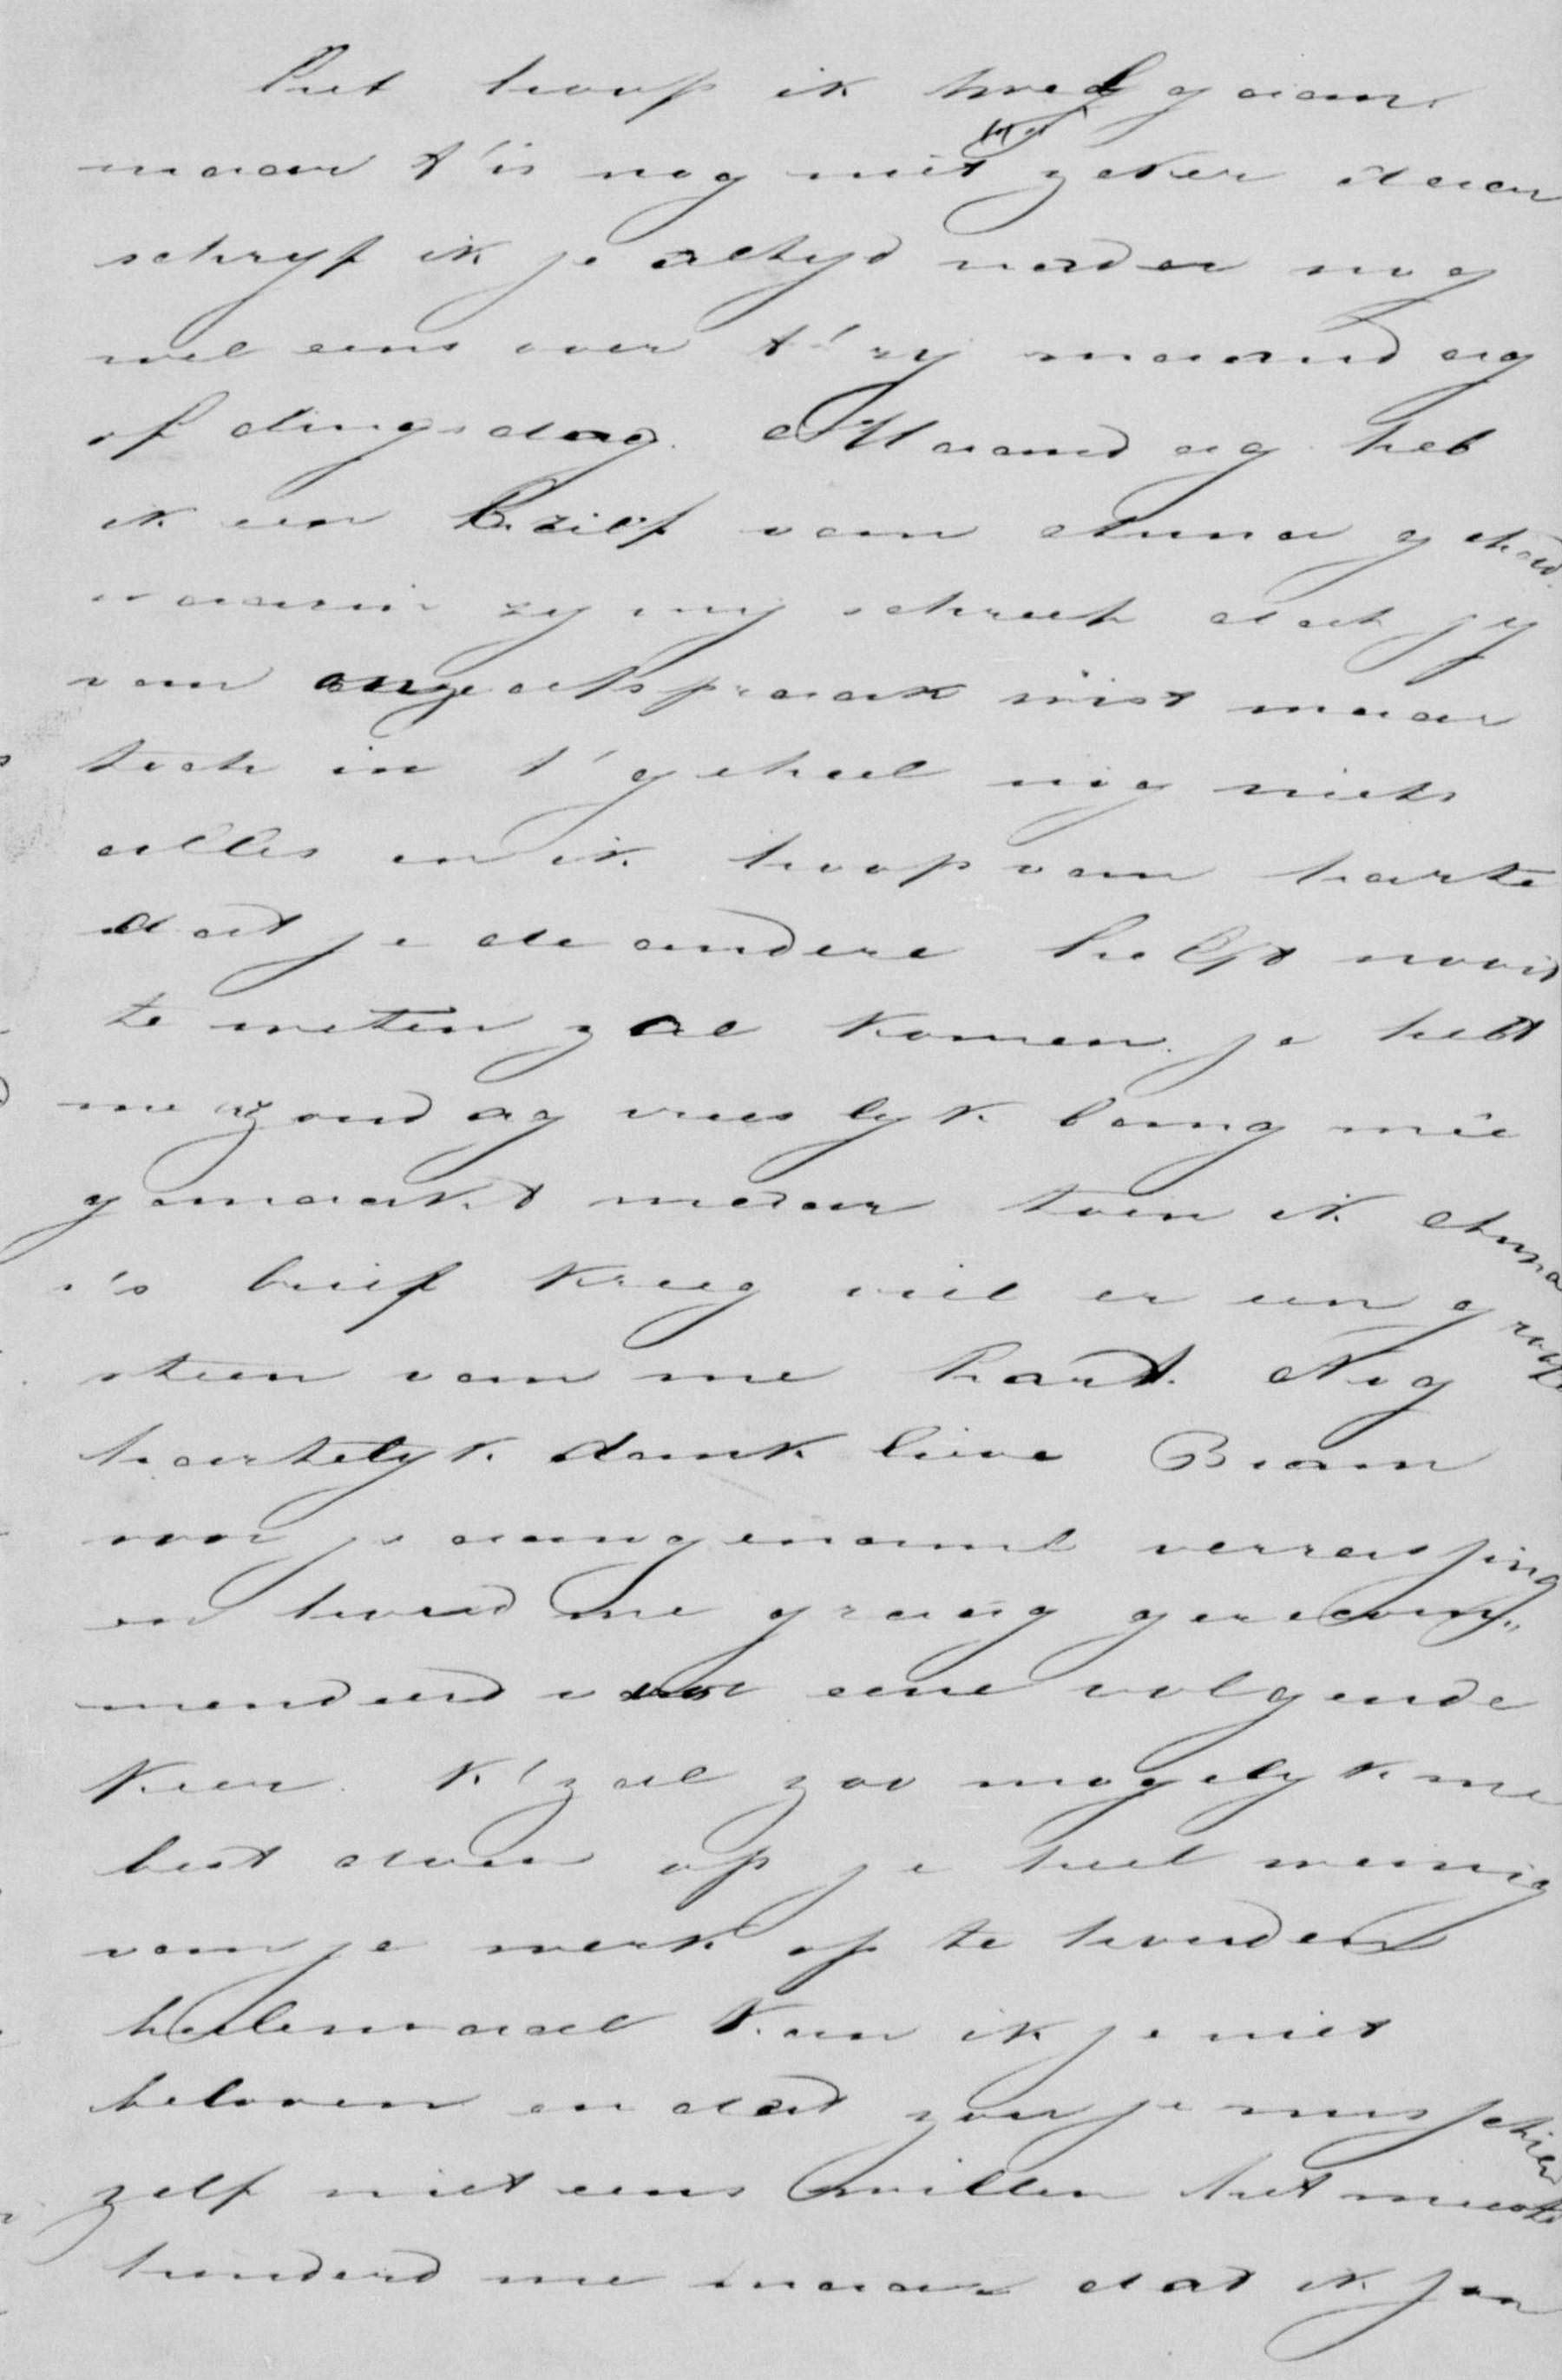 het hoop ik hoed gaan
maar t'is nog niet zeker daar
schryf ik je altyd nader nog
wel eens over t'zy maandag
of dingsdag. Maandag heb
ik een brief van Anna gehad
waarin zy my schreef dat jy
van afspraak wist maar
toch in t'geheel nog niets
alles en ik hoop van harte
dat je de andere helft nooit
te weten zal komen. je hebt
me zondag vreeslyk bang mêe
gemaakt maar toen ik Anna
's brief kreeg viel er een groote
steen van me hart. Nog
hartelyk dank lieve Bram
voor je aangename verrassing
en houd me graag gerecom„
mendeerd voor eene volgende
keer. k'zal zoo mogelyk me
best doen op je heel weinig
van je werk op te houden
heelemaal kan ik je niet
beloven en dat zou je misschien
zelf niet eens willen het meeste
hinderd me maar dat ik jou